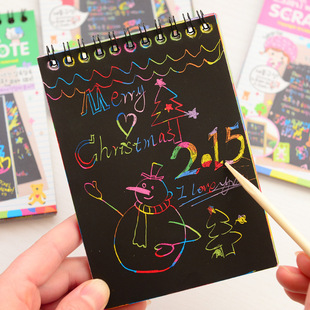 OTE
SCRA
Merry
Christmas
2.15
I Love you